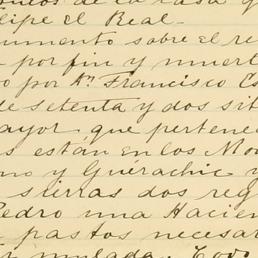 de la casa q
lipe el Real.
umento sobre el re
por fin y muert
o por Dn. Francisco Es
de setenta y dos sit
ayor que pertenec
s están en los Mo
no y Guerachic y
sierras dos reg
Pedro una Hacien
pastos necesar
mulada. Todo